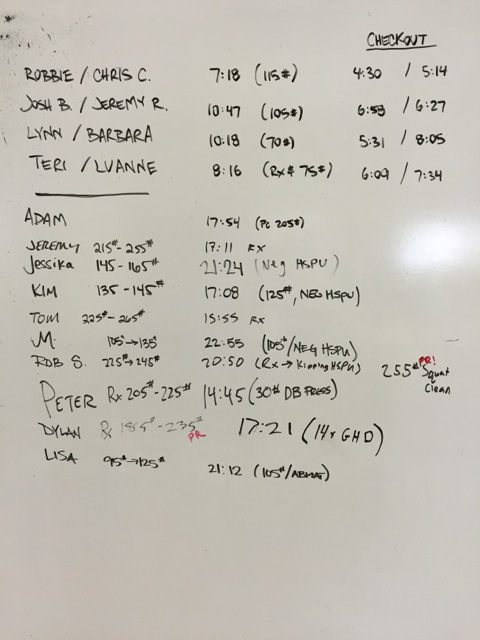 CHECKOUT
ROBBIE / CHRIS C. 7:18 (115#) 4:30 / 5:14
JOSH B. / JEREMY R. 10:47 (105#) 6:53 / 6:27
LYNN / BARBARA 10:18 (70#) 5:31 / 8:05
TERI / LUANNE 8:16 (Rx # 75#) 6:09 / 7:34
ADAM 17:54 (PC 205#)
JEREMY 215#-255# 17:11 RX
Jessika 145-165# 21:24 (Neg HSPU)
KIM 135-145# 17:08 (125#, NEG HSPU)
TOM 225#-265# 15:55 RX
M. 105#→135# 22:55 (105#/NEG HSPU)
ROB S. 225#→245# 20:50 (Rx → Kipping HSPU) 255# PR! Squat Clean
PETER Rx 205#-225# 14:45 (30# DB PRESS)
DYLAN Rx 185#-235# PR 17:21 (14x GHD)
LISA 95#→125# 21:12 (105#/ABMAT)